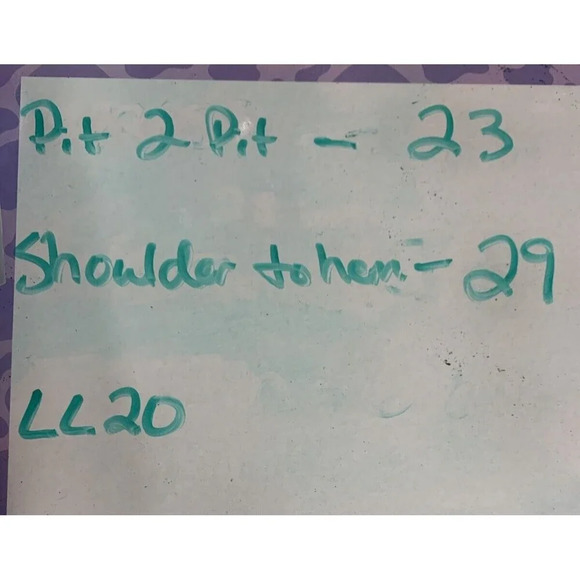 Pit 2 Pit - 23
Shoulder to hem - 29
LL20